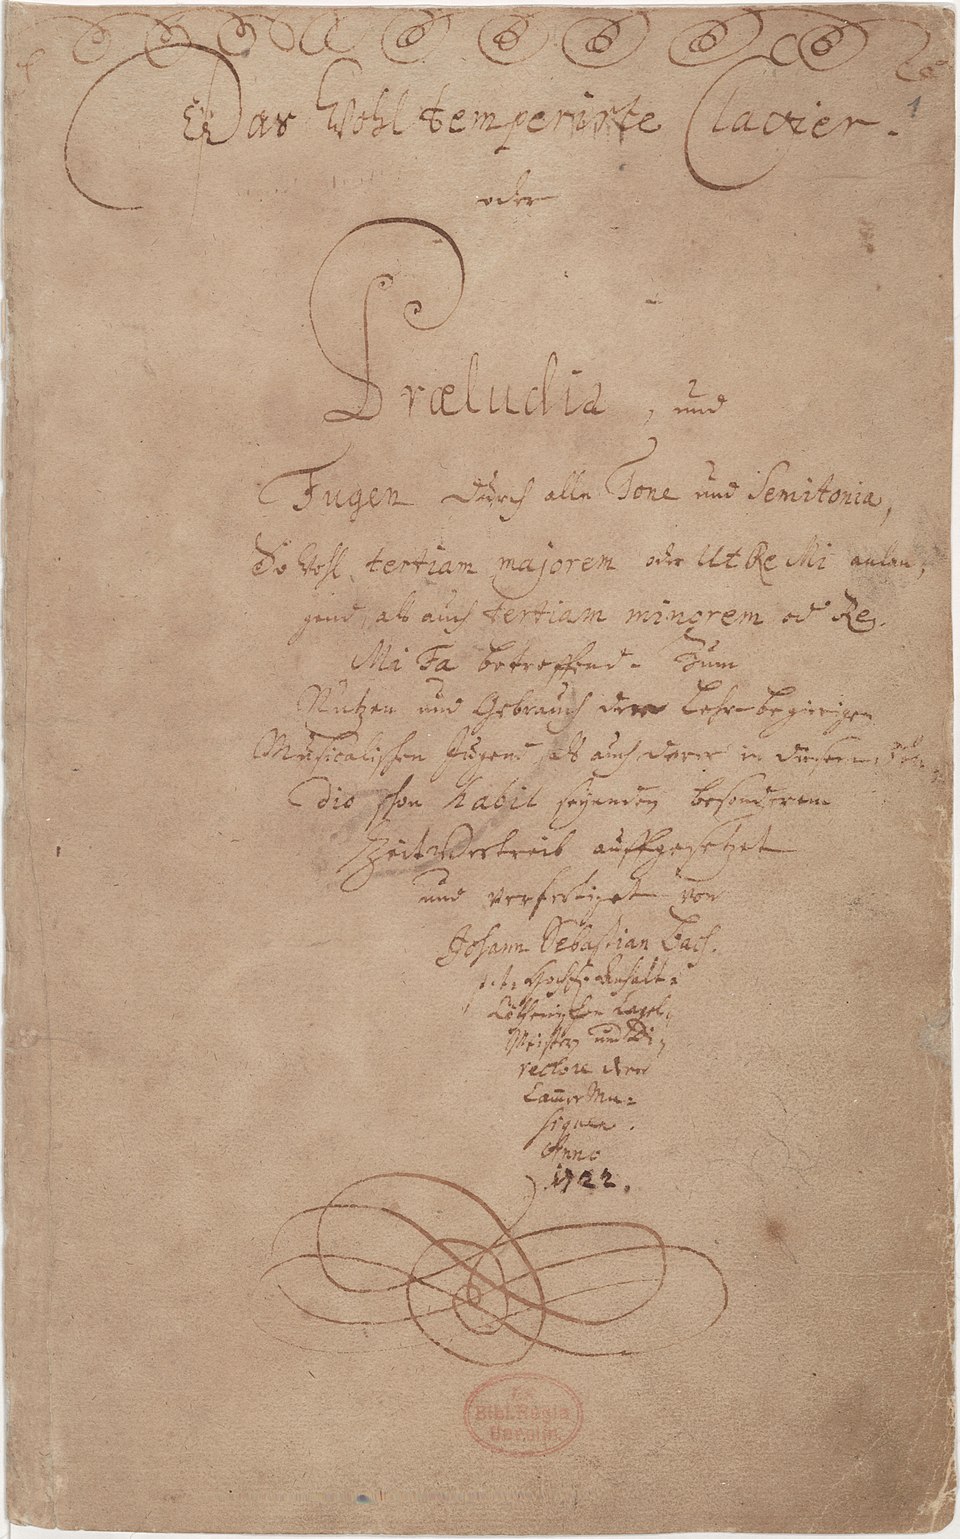 Das Wohltemperirte Clavier.
oder
Præludia, und
Fugen durch alle Tone und Semitonia,
So wohl tertiam majorem oder Ut Re Mi anlan-
gend, als auch tertiam minorem oder Re
Mi Fa betreffend. Zum
Nutzen und Gebrauch der Lehr-begierigen
Musicalischen Jugend, als auch derer in diesem stu-
dio schon habil seyenden besonderem
Zeitvertreib auffgesetzet
und verfertiget von
Johann Sebastian Bach.
p. t. Hochfürstl. Anhalt-
Cöthenischen Capel-
Meistern und Di-
rectore derer
Cammer Mu-
siquen.
Anno
1722.
1
Ex
Bibl. Regia
Berolin.